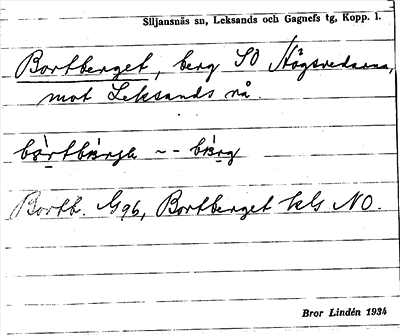 Siljansnäs sn, Leksands och Gagnefs tg, Kopp. l.
Bortberget, berg SO Högsvedarna,
mot Leksands rå.
Bortb. G96, Bortberget kls NO.
Bror Lindén 1934